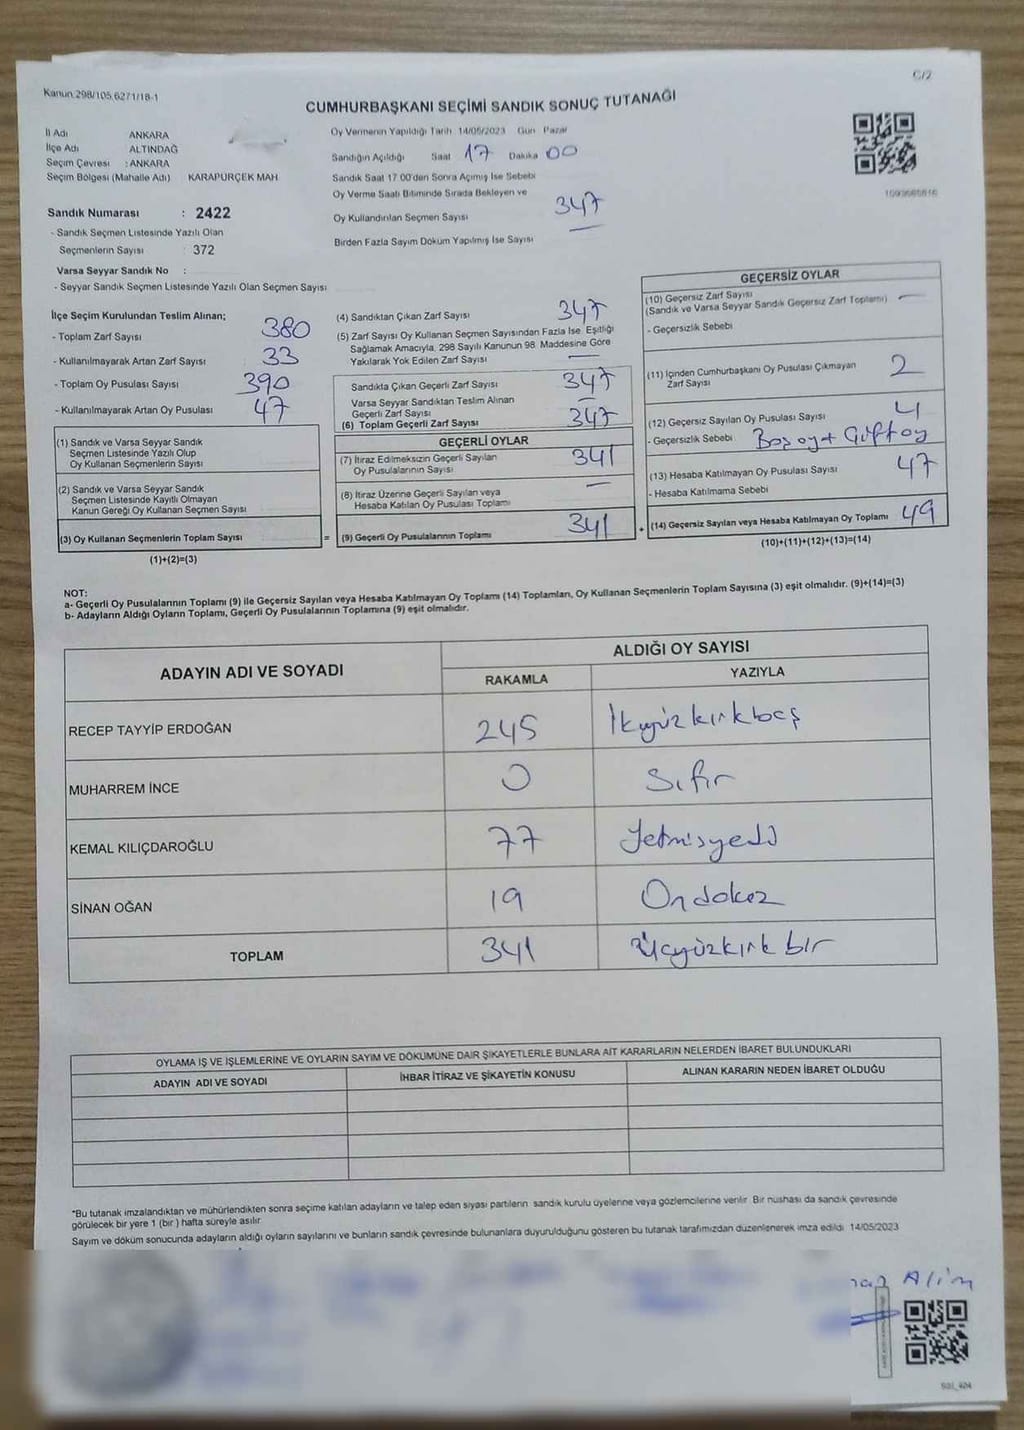 C/2
Kanun 298/105,6271/18-1
CUMHURBAŞKANI SEÇİMİ SANDIK SONUÇ TUTANAĞI
İl Adı ANKARA
İlçe Adı ALTINDAĞ
Seçim Çevresi : ANKARA
Seçim Bölgesi (Mahalle Adı) KARAPÜRÇEK MAH
Oy Vermenin Yapıldığı Tarih 14/05/2023 Gün Pazar
Sandığın Açıldığı Saat 17 Dakika 00
Sandık Saat 17 00'den Sonra Açımış İse Sebebi
Oy Verme Saati Bitiminde Sırada Bekleyen ve
Oy Kullandırılan Seçmen Sayısı 347
Birden Fazla Sayım Döküm Yapılmış İse Sayısı
Sandık Numarası : 2422
- Sandık Seçmen Listesinde Yazılı Olan
Seçmenlerin Sayısı : 372
Varsa Seyyar Sandık No :
- Seyyar Sandık Seçmen Listesinde Yazılı Olan Seçmen Sayısı
İlçe Seçim Kurulundan Teslim Alınan;
- Toplam Zarf Sayısı 380
- Kullanılmayarak Artan Zarf Sayısı 33
- Toplam Oy Pusulası Sayısı 390
- Kullanılmayarak Artan Oy Pusulası 47
(1) Sandık ve Varsa Seyyar Sandık
Seçmen Listesinde Yazılı Olup
Oy Kullanan Seçmenlerin Sayısı
(2) Sandık ve Varsa Seyyar Sandık
Seçmen Listesinde Kayıtlı Olmayan
Kanun Gereği Oy Kullanan Seçmen Sayısı
(3) Oy Kullanan Seçmenlerin Toplam Sayısı
(1)+(2)=(3)
=
(4) Sandıktan Çıkan Zarf Sayısı 347
(5) Zarf Sayısı Oy Kullanan Seçmen Sayısından Fazla İse Eşitliği
Sağlamak Amacıyla, 298 Sayılı Kanunun 98 Maddesine Göre
Yakılarak Yok Edilen Zarf Sayısı —
Sandıkta Çıkan Geçerli Zarf Sayısı 347
Varsa Seyyar Sandıktan Teslim Alınan
Geçerli Zarf Sayısı —
(6) Toplam Geçerli Zarf Sayısı 347
GEÇERLİ OYLAR
(7) İtiraz Edilmeksizin Geçerli Sayılan
Oy Pusulalarının Sayısı 341
(8) İtiraz Üzerine Geçerli Sayılan veya
Hesaba Katılan Oy Pusulası Toplamı —
(9) Geçerli Oy Pusulalarının Toplamı 341
+
GEÇERSİZ OYLAR
(10) Geçersiz Zarf Sayısı
(Sandık ve Varsa Seyyar Sandık Geçersiz Zarf Toplamı) —
- Geçersizlik Sebebi
(11) İçinden Cumhurbaşkanı Oy Pusulası Çıkmayan
Zarf Sayısı 2
(12) Geçersiz Sayılan Oy Pusulası Sayısı 4
- Geçersizlik Sebebi Boş oy + Çift oy
(13) Hesaba Katılmayan Oy Pusulası Sayısı 47
- Hesaba Katılmama Sebebi
(14) Geçersiz Sayılan veya Hesaba Katılmayan Oy Toplamı 49
(10)+(11)+(12)+(13)=(14)
NOT:
a- Geçerli Oy Pusulalarının Toplamı (9) ile Geçersiz Sayılan veya Hesaba Katılmayan Oy Toplamı (14) Toplamları, Oy Kullanan Seçmenlerin Toplam Sayısına (3) eşit olmalıdır. (9)+(14)=(3)
b- Adayların Aldığı Oyların Toplamı, Geçerli Oy Pusulalarının Toplamına (9) eşit olmalıdır.
ADAYIN ADI VE SOYADI
ALDIĞI OY SAYISI
RAKAMLA YAZIYLA
RECEP TAYYİP ERDOĞAN 245 İkiyüzkırkbeş
MUHARREM İNCE 0 Sıfır
KEMAL KILIÇDAROĞLU 77 Yetmişyedi
SİNAN OĞAN 19 Ondokuz
TOPLAM 341 Üçyüzkırk bir
OYLAMA İŞ VE İŞLEMLERİNE VE OYLARIN SAYIM VE DÖKÜMÜNE DAİR ŞİKAYETLERLE BUNLARA AİT KARARLARIN NELERDEN İBARET BULUNDUKLARI
ADAYIN ADI VE SOYADI İHBAR İTİRAZ VE ŞİKAYETİN KONUSU ALINAN KARARIN NEDEN İBARET OLDUĞU
*Bu tutanak imzalandıktan ve mühürlendikten sonra seçime katılan adayların ve talep eden siyasi partilerin sandık kurulu üyelerine veya gözlemcilerine verilir. Bir nüshası da sandık çevresinde
görülecek bir yere 1 (bir) hafta süreyle asılır.
Sayım ve döküm sonucunda adayların aldığı oyların sayılarını ve bunların sandık çevresinde bulunanlara duyurulduğunu gösteren bu tutanak tarafımızdan düzenlenerek imza edildi 14/05/2023
Alim